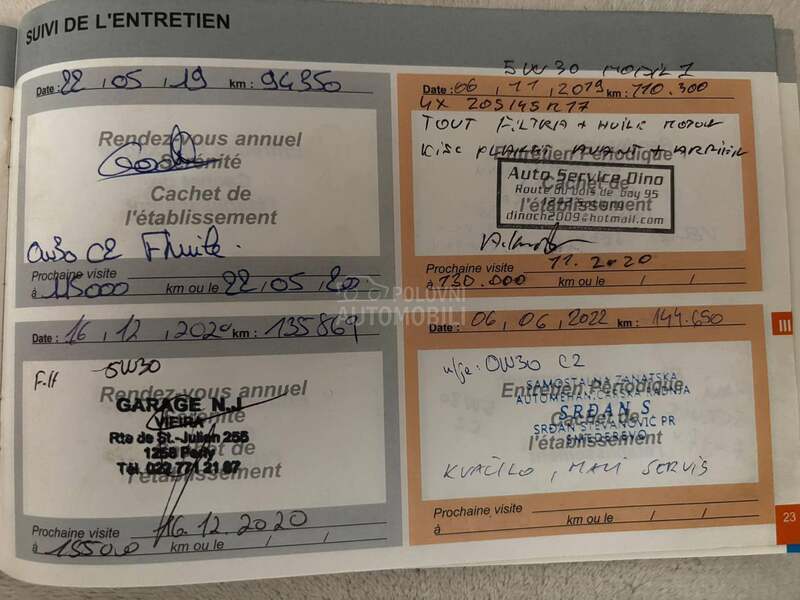 SUIVI DE L'ENTRETIEN
Date : 22 , 05 , 19 km : 94350
Rendez-vous annuel
Sérénité
Cachet de
l'établissement
0W30 C2 Fluite.
Prochaine visite
à 115000 km ou le 22 , 05 , 20
5W30 MOBIL 1
Date : 06 , 11 , 2019 km : 110.300
4X 205/45 R17
TOUT FILTRA + HUILE MOTOR
DISC PLAKET AVANT + ARRIER
Entretien Périodique
Auto Service Dino
Route du Bois de Bay 95
1242 Satigny
dinoch2009@hotmail.com
Cachet de
l'établissement
Prochaine visite 11. 2020
à 130.000 km ou le / /
Date : 16 , 12 , 2020 km : 135869
F.H 5W30
Rendez-vous annuel
Sérénité
GARAGE N.J
VIEIRA
Rte de St.-Julien 255
1258 Perly
Tél. 022 771 21 87
Cachet de
l'établissement
Prochaine visite 16.12.2020
à 155000 km ou le / /
Date : 06 , 06 , 2022 km : 144.650
ulje: 0W30 C2
Entretien Périodique
SAMOSTALNA ZANATSKA
AUTOMEHANIČARSKA RADNJA
SRĐAN S
SRĐAN STEVANOVIĆ PR
SMEDEREVO
Cachet de
l'établissement
KVAČILO, MALI SERVIS
Prochaine visite
à km ou le / /
III
23
POLOVNI
AUTOMOBILI